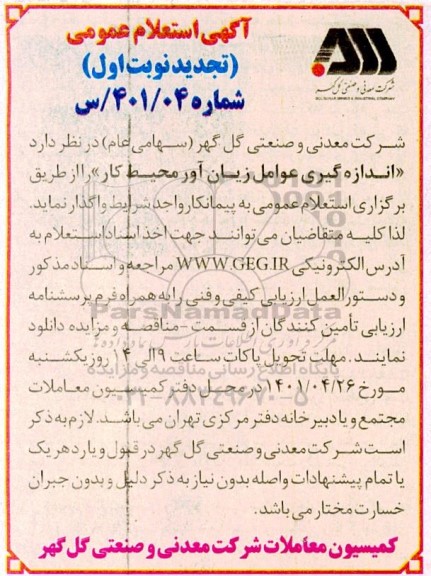 آگهی استعلام عمومی
(تجدید نوبت اول)
شماره ۴۰۱/۰۴/س
شرکت معدنی و صنعتی گل گهر
شرکت معدنی و صنعتی گل گهر (سهامی عام) در نظر دارد
«اندازه گیری عوامل زیان آور محیط کار» را از طریق
برگزاری استعلام عمومی به پیمانکار واجد شرایط واگذار نماید.
لذا کلیه متقاضیان می توانند جهت اخذ اسناد استعلام به
آدرس الکترونیکی WWW.GEG.IR مراجعه و اسناد مذکور
و دستورالعمل ارزیابی کیفی و فنی را به همراه فرم پرسشنامه
ارزیابی تأمین کنندگان از قسمت - مناقصه و مزایده دانلود
نمایند. مهلت تحویل پاکات ساعت ۹ الی ۱۴ روز یکشنبه
مورخ ۱۴۰۱/۰۴/۲۶ در محل دفتر کمیسیون معاملات
مجتمع و یا دبیرخانه دفتر مرکزی تهران می باشد. لازم به ذکر
است شرکت معدنی و صنعتی گل گهر در قبول و یا رد هر یک
یا تمام پیشنهادات واصله بدون نیاز به ذکر دلیل و بدون جبران
خسارت مختار می باشد.
کمیسیون معاملات شرکت معدنی و صنعتی گل گهر
ParsNamadData
پایگاه اطلاع رسانی مناقصه و مزایده
۰۲۱-۸۸۳۴۹۶۷۰-۵